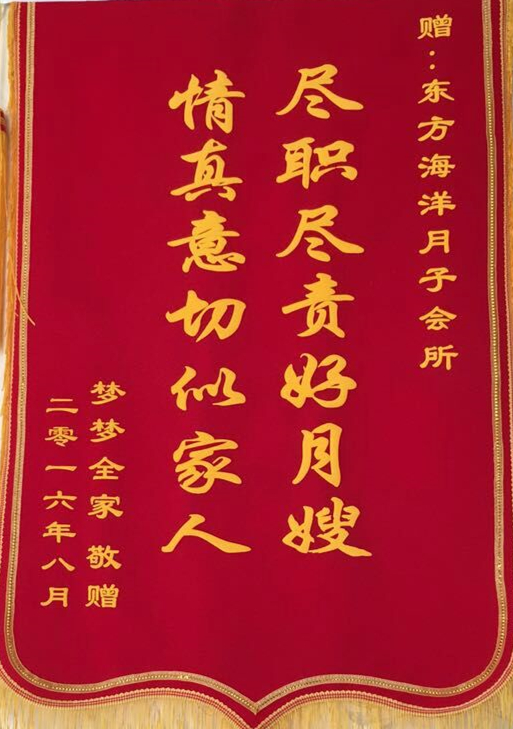 赠：东方海洋月子会所
尽职尽责好月嫂
情真意切似家人
梦梦全家 敬赠
二零一六年八月